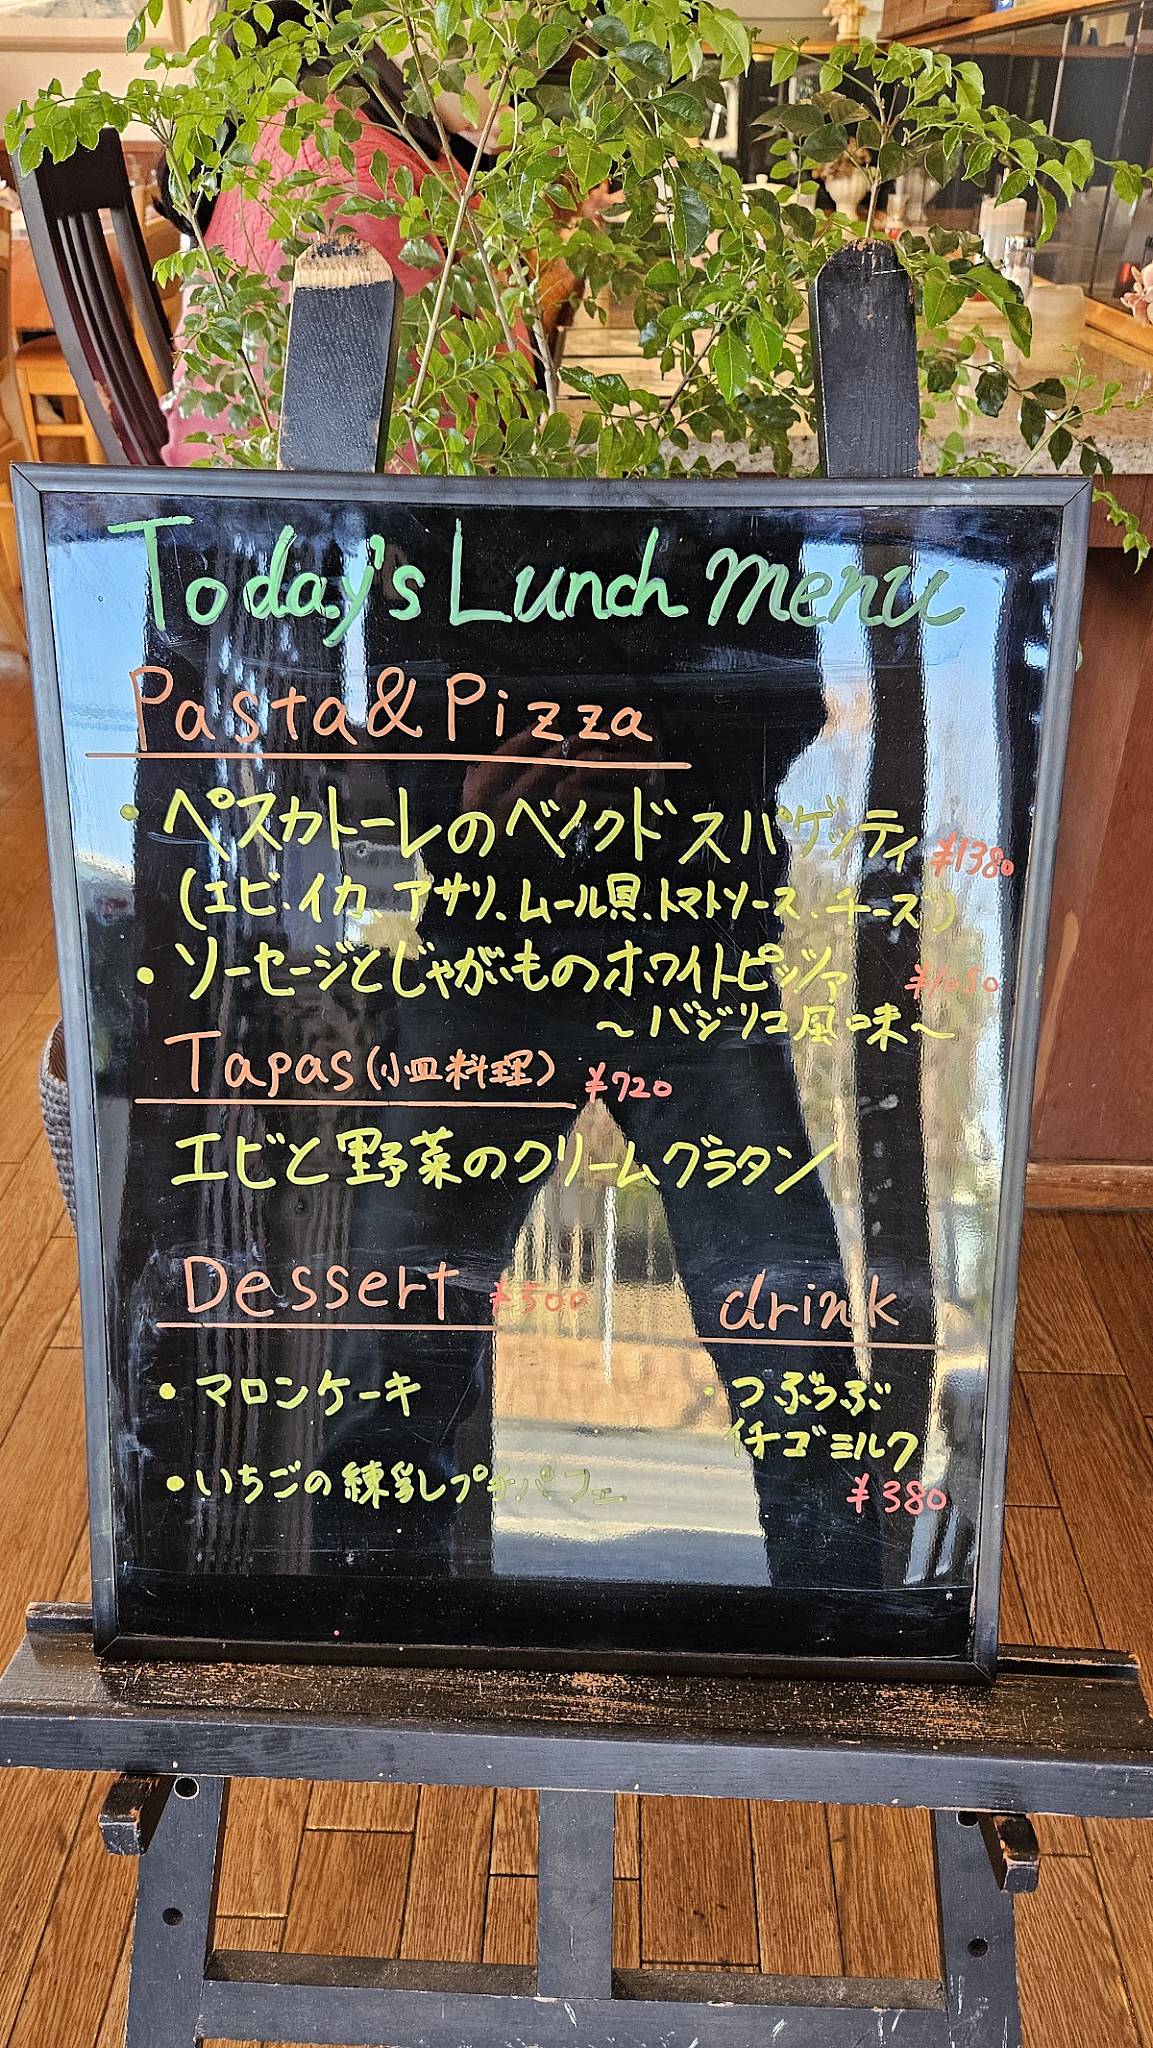 Today's Lunch menu
Pasta&Pizza
・ペスカトーレのベイクドスパゲッティ ¥1380
(エビ、イカ、アサリ、ムール貝、トマトソース、チーズ)
・ソーセージとじゃがいものホワイトピッツァ
～バジリコ風味～
Tapas(小皿料理) ¥720
エビと野菜のクリームグラタン
Dessert ¥500
・マロンケーキ
・いちごの練乳プチパフェ
drink
・つぶつぶ
イチゴミルク
¥380